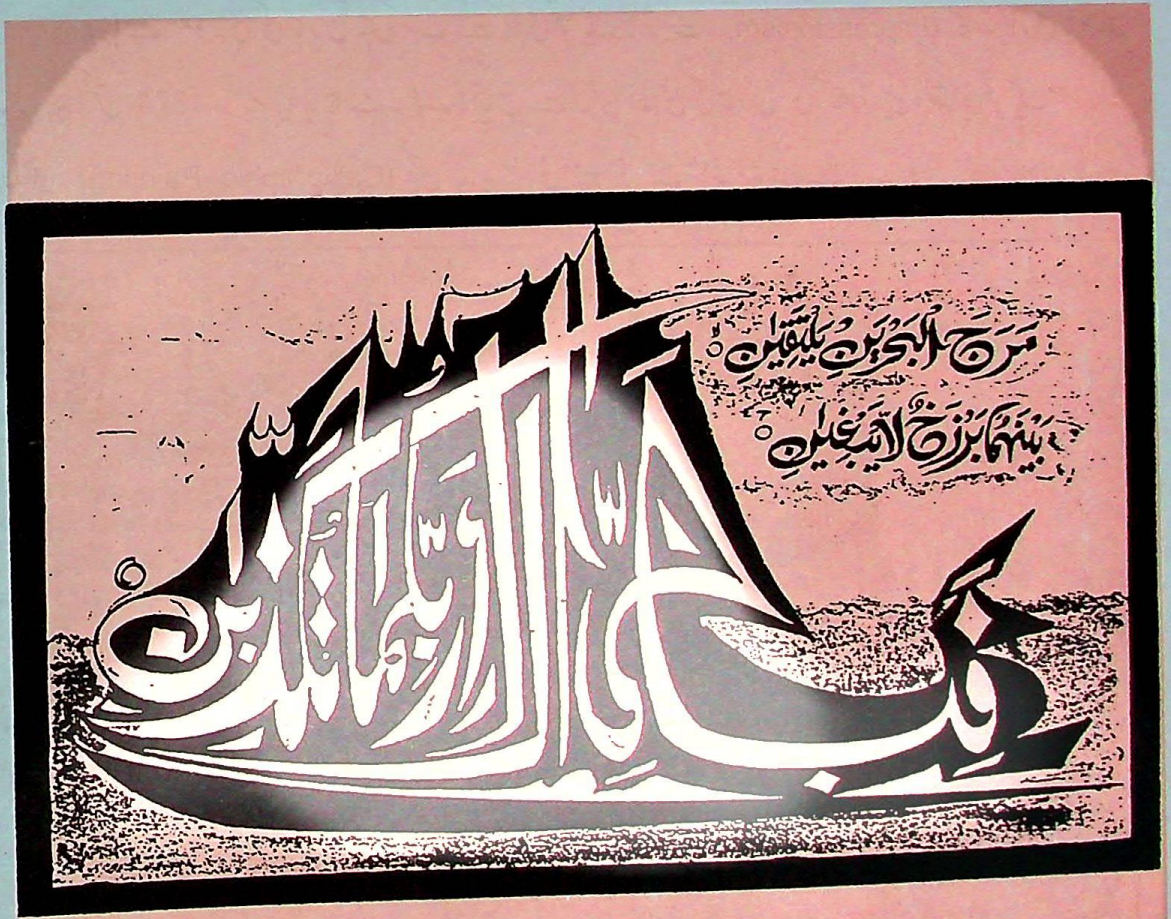 مَرَجَ الْبَحْرَيْنِ يَلْتَقِيَانِ
بَيْنَهُمَا بَرْزَخٌ لَّا يَبْغِيَانِ
فَبِأَيِّ آلَاءِ رَبِّكُمَا تُكَذِّبَانِ